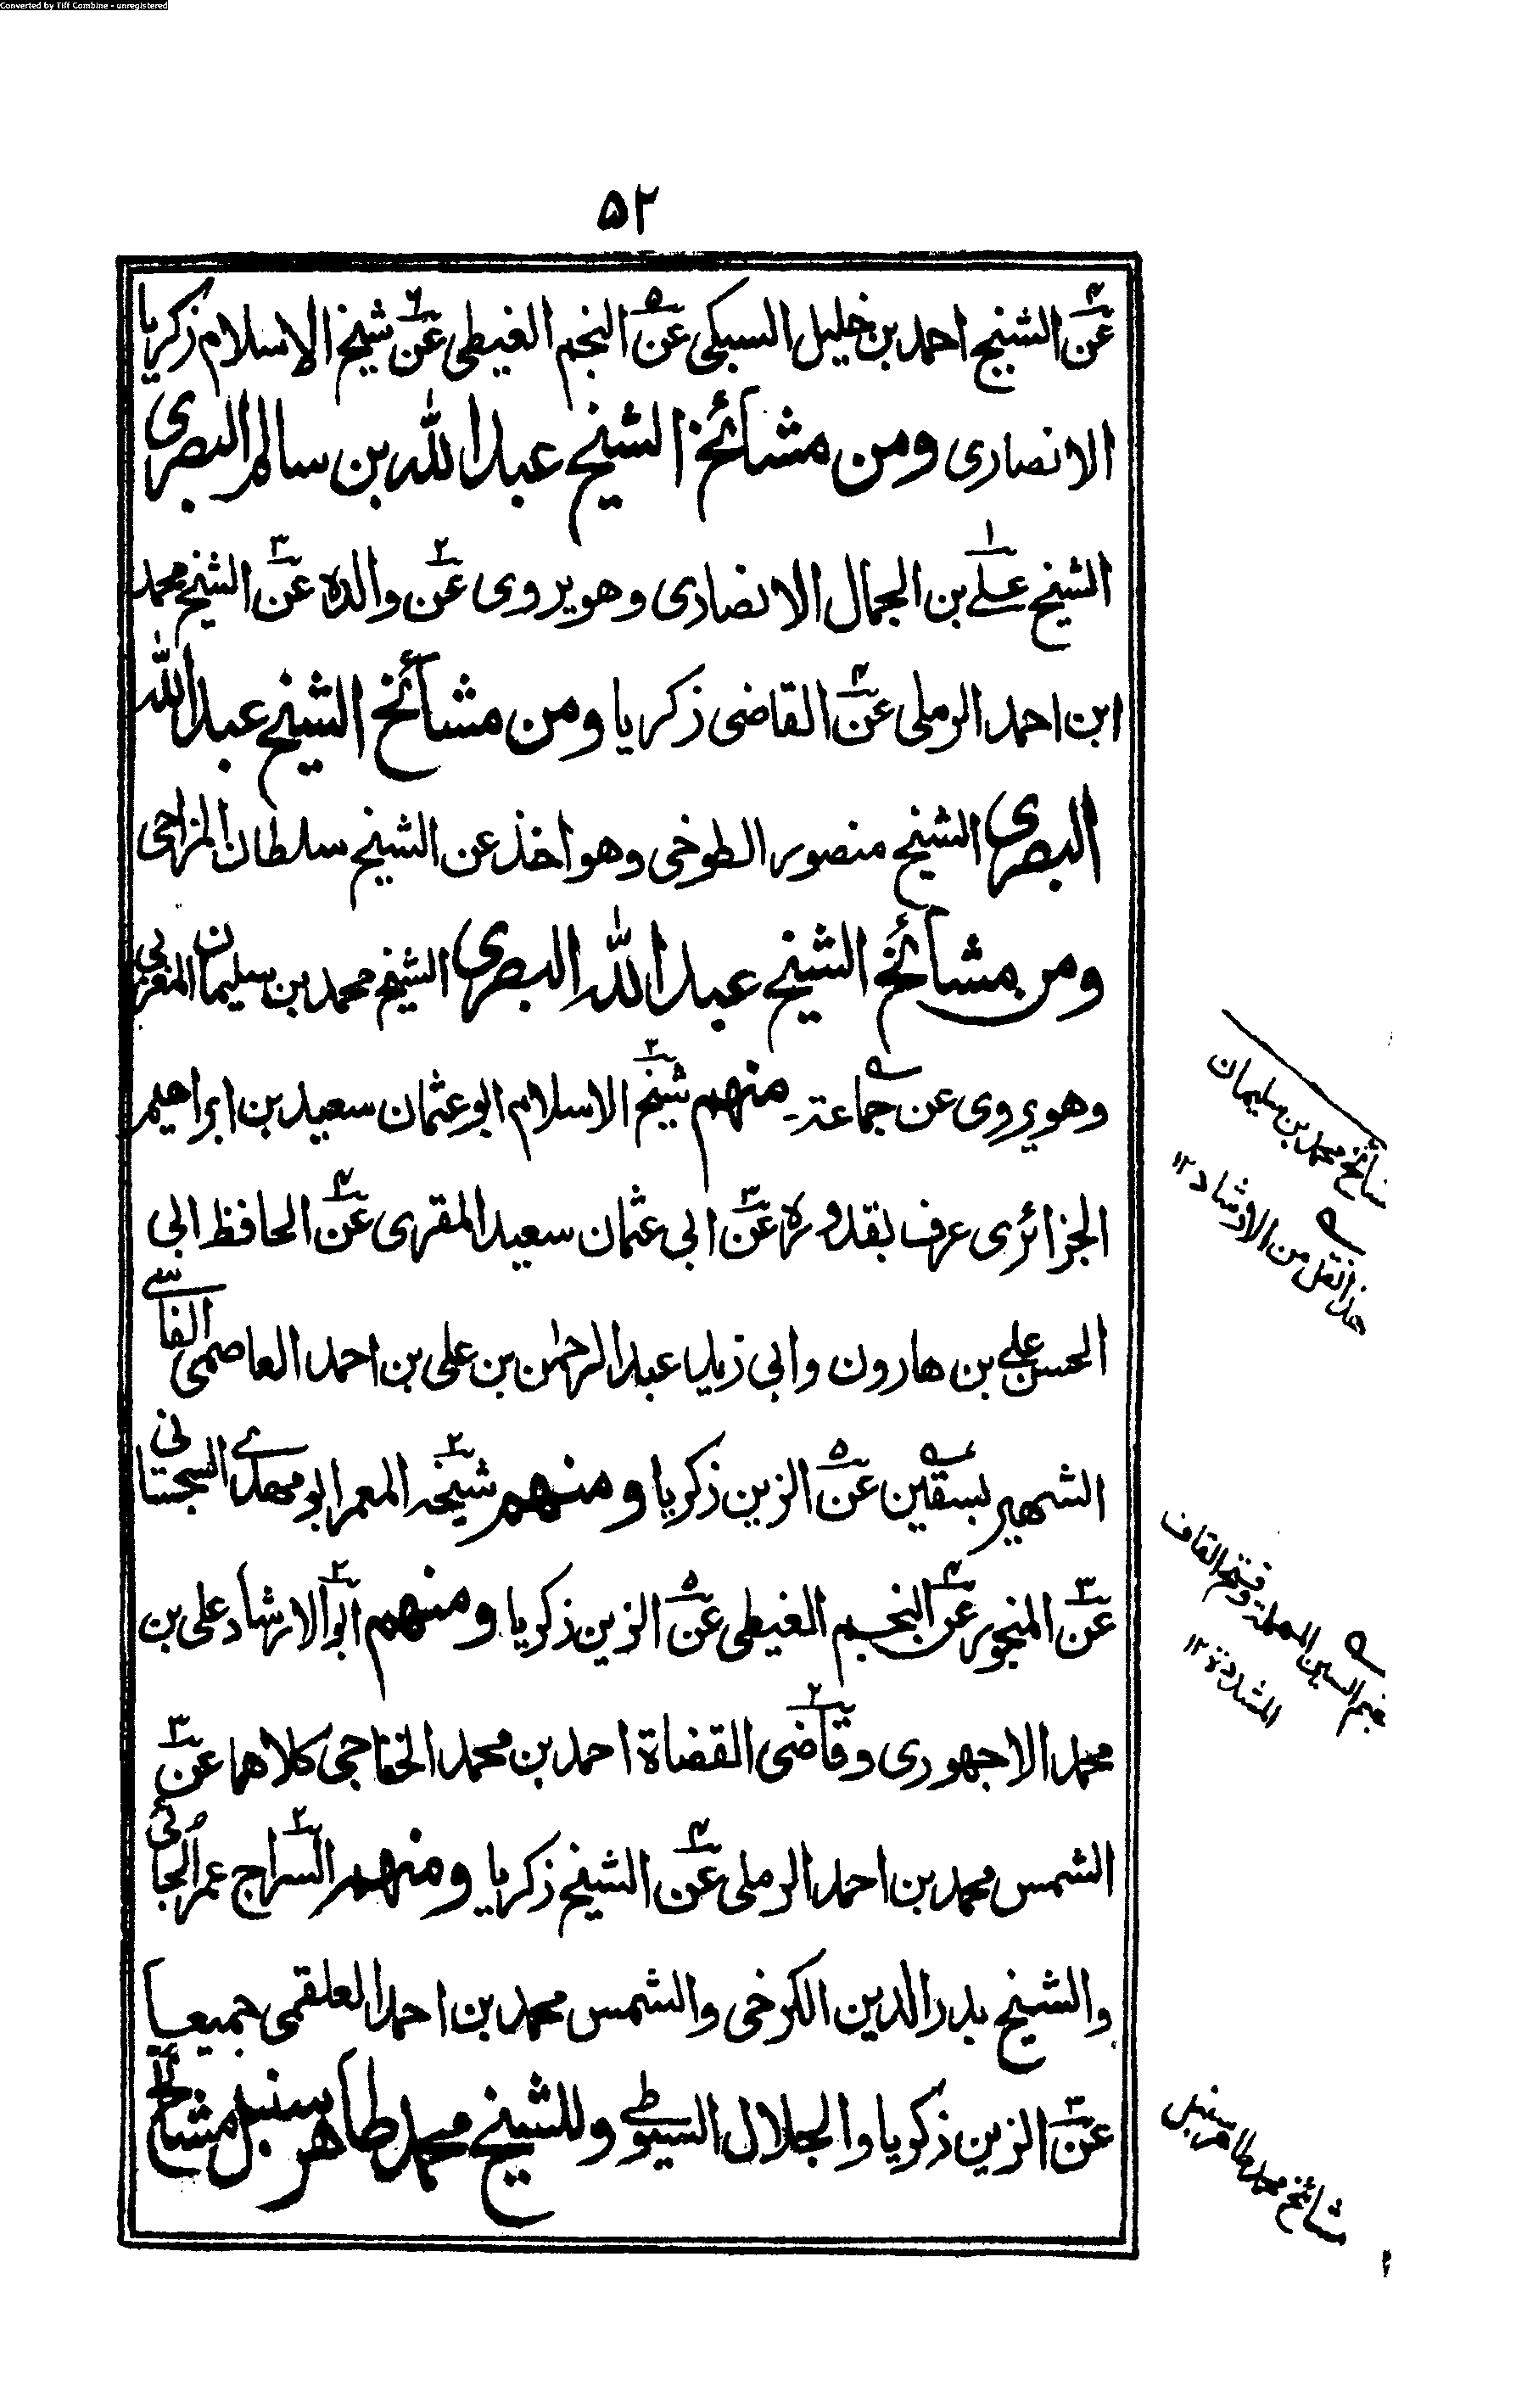 Converted by Tiff Combine - unregistered
۵۲
عن الشيخ احمد بن خليل السبكى عن النجم الغيطى عن شيخ الاسلام زكريا
الانصارى ومن مشائخ الشيخ عبدالله بن سالم البصرى
الشيخ على بن الجمال الانصارى وهو يروى عن والده عن الشيخ محمد
ابن احمد الرملى عن القاضى زكريا ومن مشائخ الشيخ عبدالله
البصرى الشيخ منصور الطوخى وهو اخذ عن الشيخ سلطان المزاحى
ومن مشائخ الشيخ عبدالله البصرى الشيخ محمد بن سليمان المغربى
وهو يروى عن جماعة منهم شيخ الاسلام ابو عثمان سعيد بن ابراهيم
الجزائرى عرف بقدوره عن ابى عثمان سعيد المقرى عن الحافظ ابى
الحسن على بن هارون وابى زيد عبدالرحمٰن بن على بن احمد العاصمى الفاسے
الشهير بسقين عن الزين زكريا ومنهم شيخه المعمر ابو مهدے السجستانى
عن المنجور عن النجم الغيطى عن الزين زكريا ومنهم ابو الارشاد على بن
محمد الاجهورى وقاضى القضاة احمد بن محمد الخفاجى كلاهما عن
الشمس محمد بن احمد الرملى عن الشيخ زكريا ومنهم السراج عمر الجائى
والشيخ بدرالدين الكرخى والشمس محمد بن احمد العلقمى جميعا
عن الزين زكريا والجلال السيوطے وللشيخ محمد طاهر سنبل مشائخ
مشائخ محمد بن سليمان
هذا نقل من الارشاد ۱۲
بضم السين المهملة وفتح القاف
المشددة ۱۲
مشائخ محمد طاهر سنبل